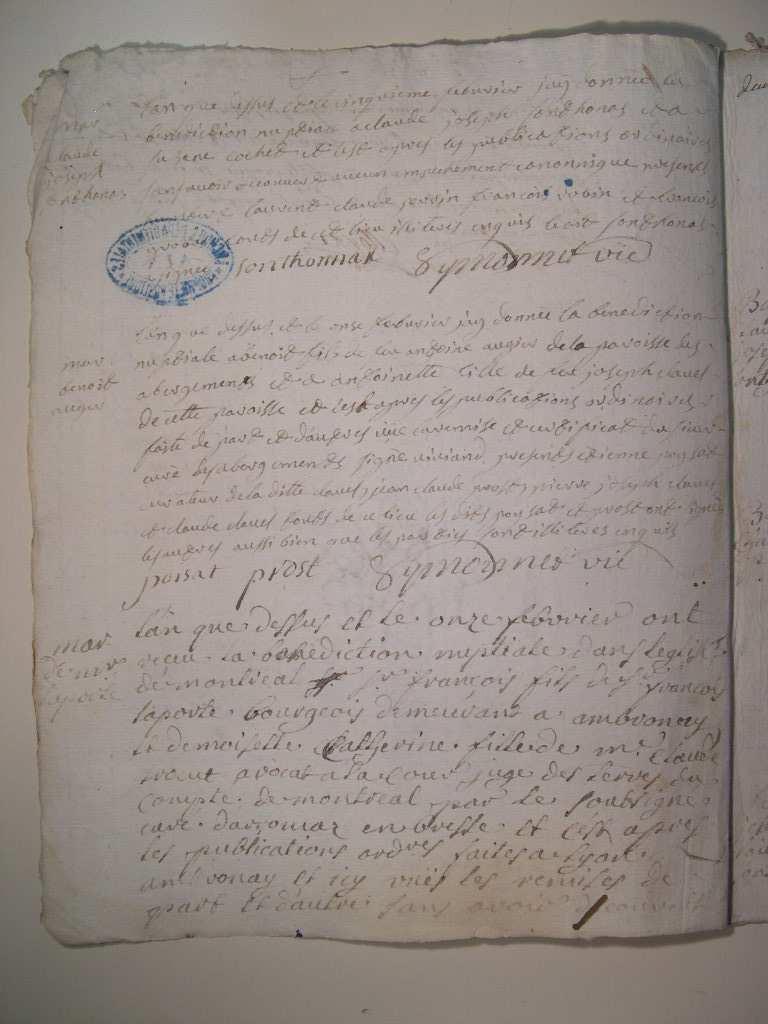 mar
claude
joseph
sonthonax
lan que dessus et le cinquieme febvrier jay donnée la
benediction nuptiale a claude joseph sonthonax et a
cochet et cest apres les publications ordinaires
sans avoir deconvert aucun empechement canonnique presents
laurent claude perrin francois robin et francois
touts de ce lieu illiteres enquis sonthonax
signé
sonthonnax Symonnet vic
mar
benoit
augier
lan que dessus et le onse febvrier jay donnée la benediction
nuptiale a benoit fils de antoine augier de la paroisse des
abergements et a antoinette fille de joseph clavel
de cette paroisse et cest apres les publications ordinaires
faite de part et dautres veüe la remise et certificat du sieur
curé des abergements signé viviand presents etienne poisat
curateur de la ditte clavel jean claude prost pierre joseph clavel
et claude clavel touts de ce lieu les dits poisat et prost ont signés
les autres aussi bien que les parties sont illiteres enquis
poisat prost Symonnet vic
mar
de mr
laporte
lan que dessus et le onze febvrier ont
receu la benediction nuptiale dans leglise
de montreal sr francois fils de sr francois
laporte bourgeois demeurant a ambronay
et demoiselle Catherine fille de mr Claude
avocat a la cour juge des terres du
Compté de montreal par le soubsigné
curé darzomaz en bresse et cest apres
les publications ordres faites a Lyon
ambronay et icy veües les remises de
part et dautre sans avoir deconvert